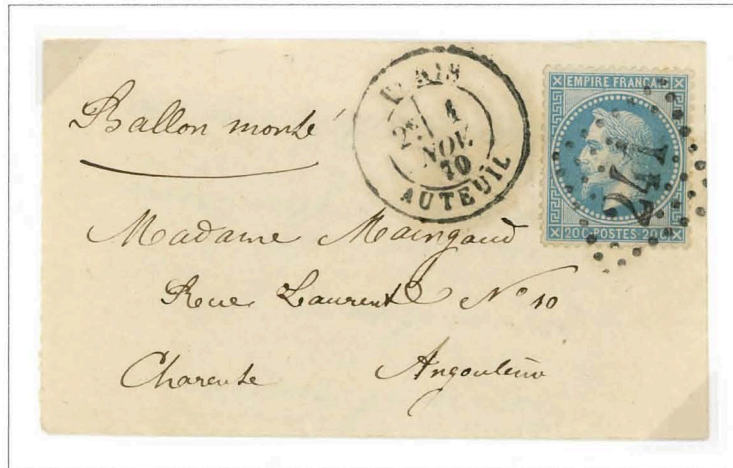 Ballon monté
PARIS
2E 1
NOV.
70
AUTEUIL
EMPIRE FRANÇAIS
20C POSTES 20C
Madame Maingaud
Rue Laurent N° 10
Charente Angoulême